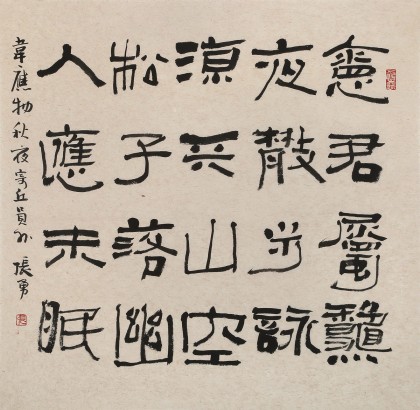 懷君屬龝
夜散步詠
涼天山空
松子落幽
人應未眠
韋應物秋夜寄丘員外 張勇